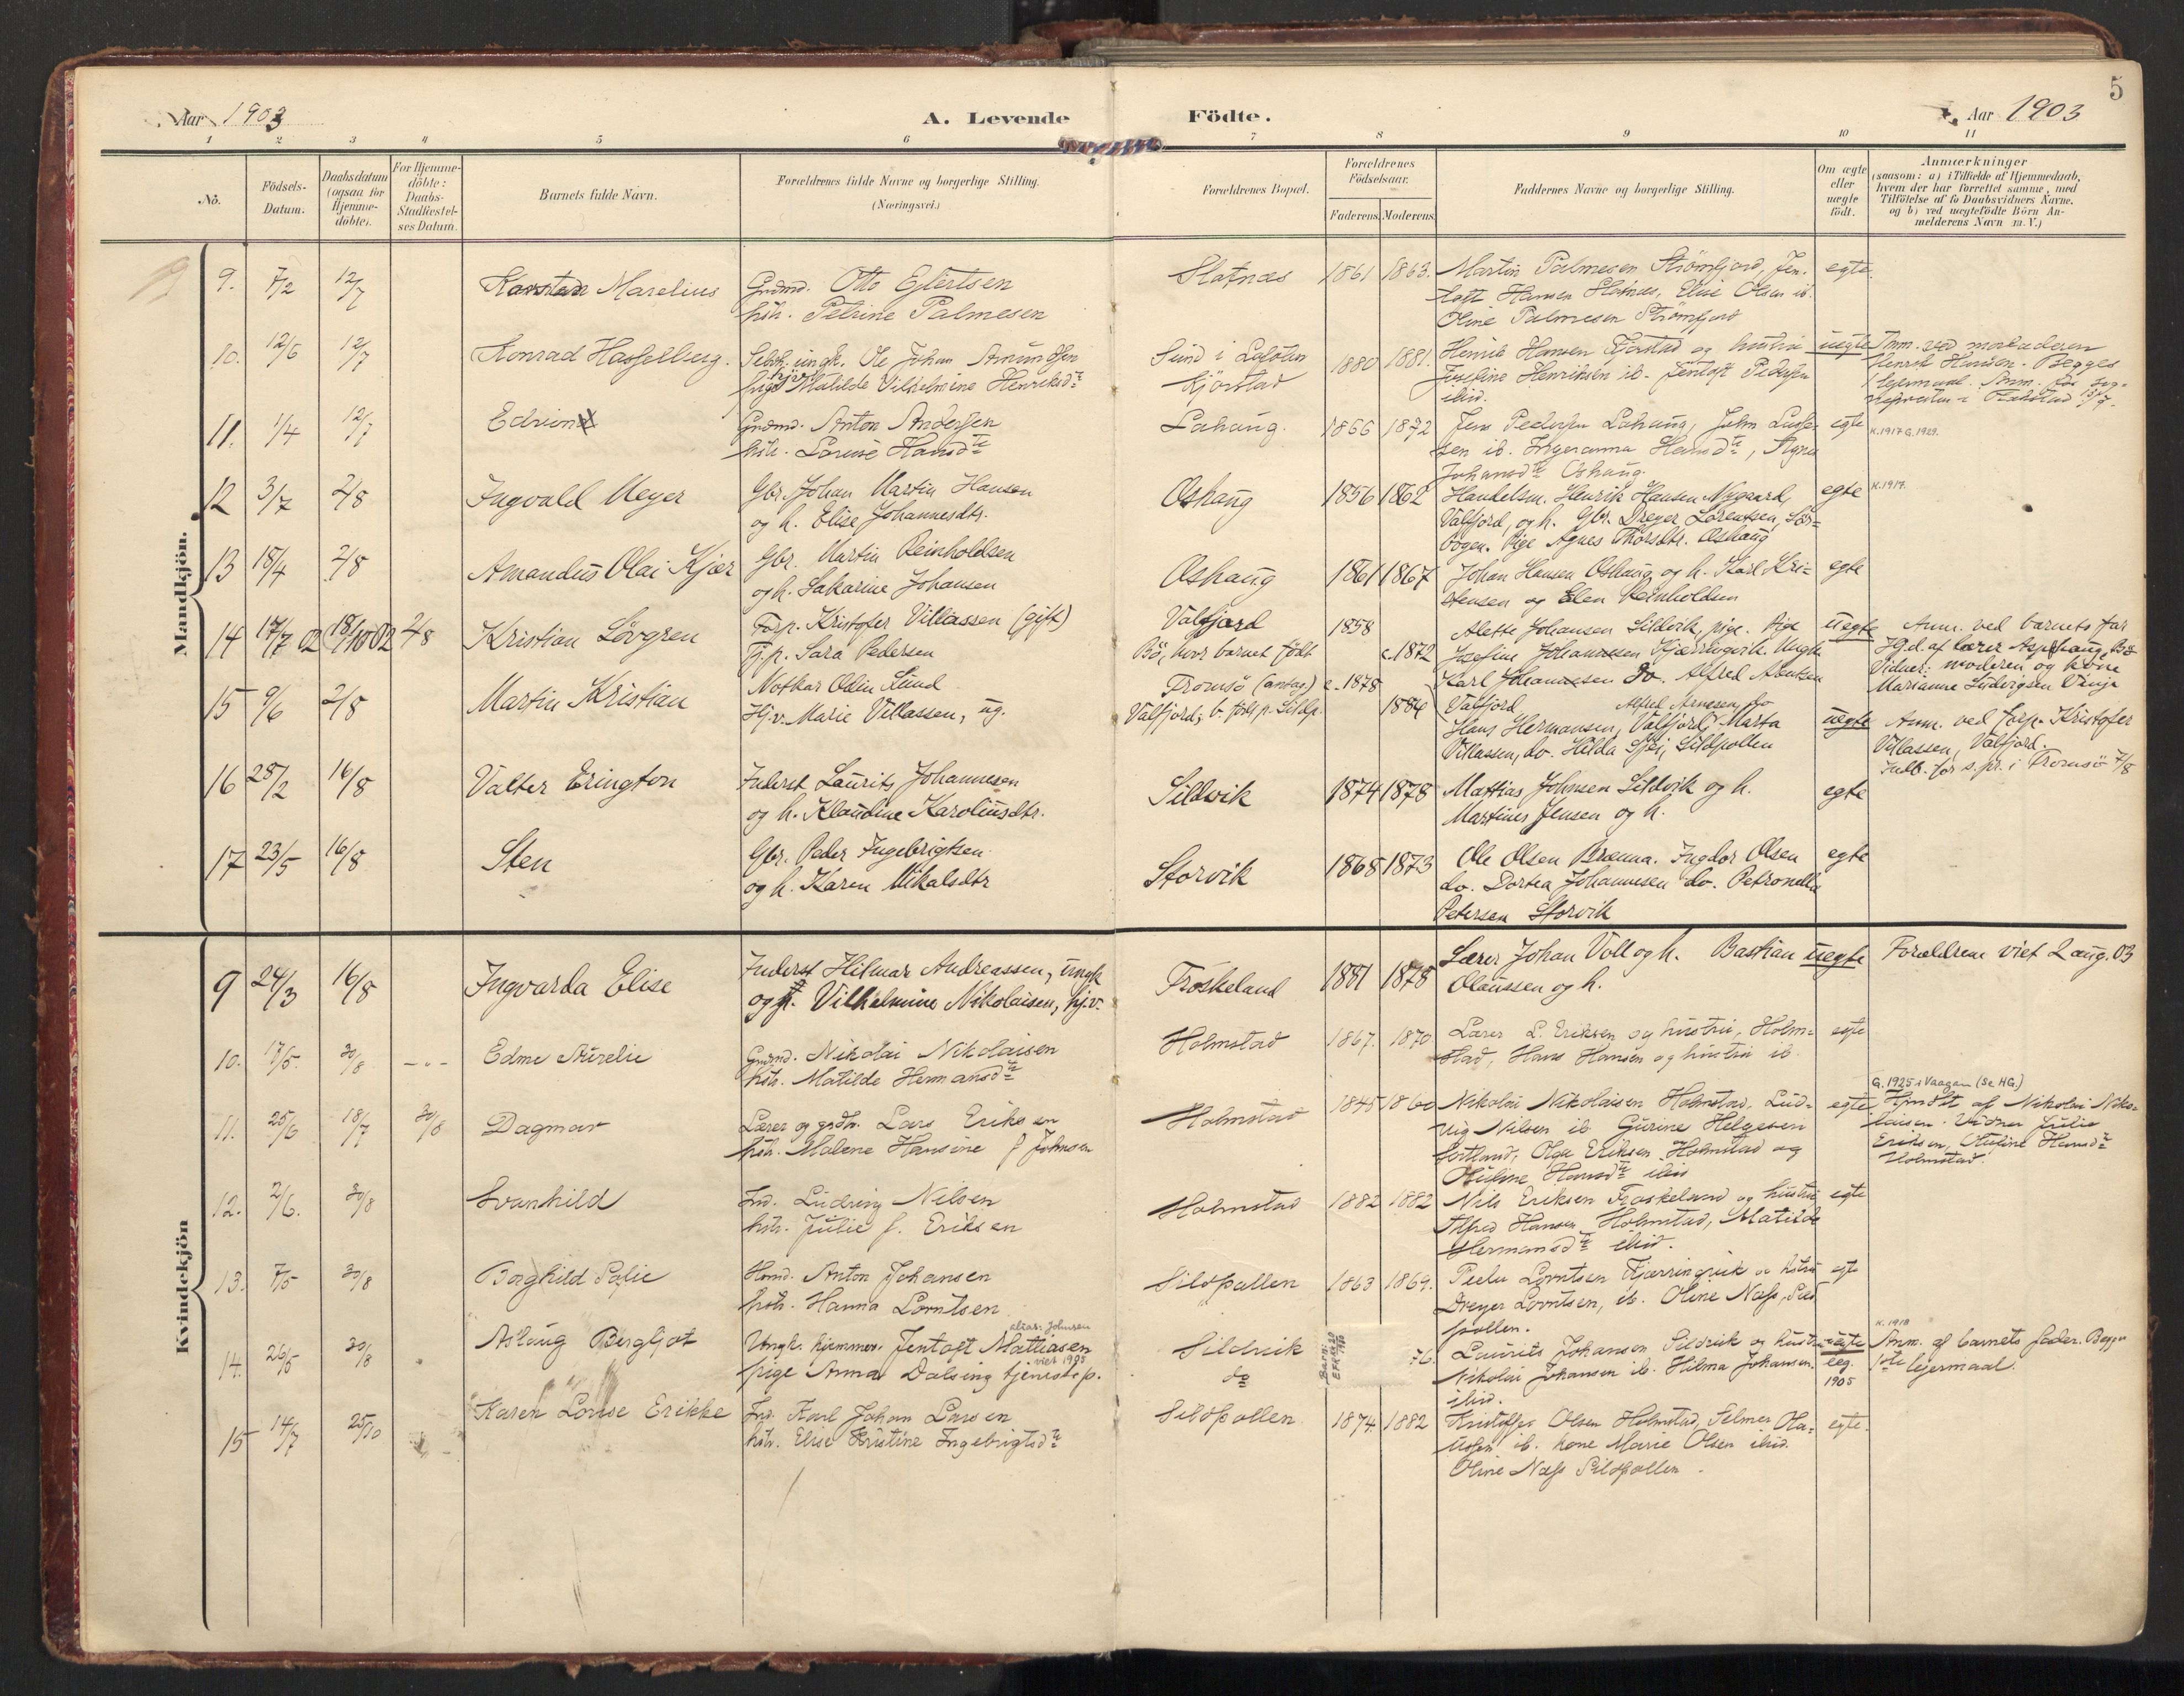 5
Aar 1903
A. Levende
Födte.
Aar 1903
1 2 3 4 5 6 7 8 9 10 11
No.
Födsels-
Datum.
Daabsdatum
(ogsaa for
Hjemme-
döbte).
For Hjemme-
döbte:
Daabs-
Stadfæstel-
ses Datum.
Barnets fulde Navn.
Forældrenes fulde Navne og borgerlige Stilling.
(Næringsvei.)
Forældrenes Bopæl.
Forældrenes
Födselsaar.
Faderens. Moderens.
Faddernes Navne og borgerlige Stilling.
Om ægte
eller
uægte
födt.
Anmærkninger
(saasom: a) i Tilfælde af Hjemmedaab,
hvem der har forrettet samme, med
Tilföielse af to Daabsvidners Navne,
og b) ved uægtefödte Börn An-
melderens Navn m. V.)
Mandkjön.
9. 7/2 12/7 Karsten Marelius
Grdmd. Otto Ejlertsen
hstr. Petrine Palmesen
Slotnæs 1861 1863.
Martin Palmesen Strömfjord, Jen-
toft Hansen Slotnæs, Elise Olsen ib.
Oline Palmesen Strömfjord
egte.
10. 12/6 12/7 Konrad Hasselberg.
Selvh. ungk. Ole Johan Amundsen
pige Matilde Vilhelmine Henriksdtr
Sund i Lofoten
Kjörstad
1880 1881.
Henrik Hansen Kjörstad og hustru
Josefine Henriksen ib. Jentoft Pedersen
ibid.
uegte
Anm. ved morfaderen
Henrik Hansen. Begges
1 lejermaal.
11. 1/4 12/7 Edvin
Grdmd. Anton Andersen
hstr. Lovise Hansdtr
Lahaug. 1866 1872
Jens Pedersen Lahaug, John
sen ib. Ingeranna Hansdtr, Agnes
Johansdtr Oshaug.
egte K. 1917 G. 1929.
12 3/7 2/8 Ingvald Meyer
Gbr. Johan Martin Hansen
og h. Elise Johannesdtr.
Oshaug 1856 1862
Handelsm. Henrik Hansen Nygaard,
Valfjord, og h. Gbr. Dreyer Lorentsen, Sör-
vogen. Pige Agnes Thorsdtr. Oshaug
egte K. 1917.
13 18/4 2/8 Amandus Olai Kjær
Gbr. Martin Reinholdsen
og h. Sakarine Johansen
Oshaug 1861 1867
Johan Hansen Oshaug og h. Karl Kri-
stensen og Elen Reinholdsen
egte
14 17/7 02 18/10 02 2/8 Kristian Lövgren
Forp. Kristofer Villassen (gift)
Tj.p. Sara Pedersen
Valfjord
Bö, hvor barnet födt
1858
c. 1872
Alette Johansen Sildvik, pige. Pige
Josefine Johannesen Kjærringvik. Ungk.
Karl Johannesen do. Alfred Arntsen
Valfjord
uegte
Anm. ved barnets far
Hjd. af lærer Aspehaug, Bö
Vidner: moderen og kone
Marianne Ludvigsen Vinje
15 9/6 2/8 Martin Kristian
Notkar Odin Lund
Hj.v. Marie Villassen, ug.
Tromsö (antag.)
Valfjord; b. födt p. Sildp.
c. 1878
1884
Alfred Arnesen, do
Hans Hermansen, Valfjord, Marta
Villassen, do. Hilda Sjöj, Sildpollen
uegte
Anm. ved forp. Kristofer
Villassen, Valfjord.
Indb. for s. pr. i Tromsö 7/8
16 28/2 16/8 Valter Erington
Inderst Laurits Johannesen
og h. Klaudine Karoliusdtr.
Sildvik 1874 1878
Mattias Johnsen Sildvik og h.
Martines Jensen og h.
egte
17 23/5 16/8 Sten
Gbr. Peder Ingebrigtsen
og h. Karen Mikalsdtr
Storvik 1868 1873
Ole Olsen Brænna. Ingdor Olsen
do. Dortea Johannesen do. Petronella
Petersen Storvik
egte
Kvindekjön
9 24/3 16/8 Ingvarda Elise
Inderst Hilmar Andreassen, ungk
og p. Vilhelmine Nikolaisen, hj.v.
Troskeland 1881 1878
Lærer Johan Voll og h. Bastian
Olaussen og h.
uegte
Forældrene viet 2 aug. 03
10. 17/5. 30/8 - - - Edme Aurelie
Grdmd. Nikolai Nikolaisen
hstr. Matilde Hermansdtr
Holmstad 1867. 1870.
Lærer L. Eriksen og hustru, Holm-
stad, Hans Hansen og hustru ib.
egte
11. 25/6 18/7 30/8 Dagmar
Lærer og grdbr. Lars Eriksen
hstr. Malene Hansine f Johnsen
Holmstad 1845 1860
Nikolai Nikolaisen Holmstad, Lud-
vig Nilsen ib. Gurine Helgesen
Sortland, Olga Eriksen Holmstad og
Otuline Hansdtr ibid
egte
G. 1925 i Vaagan (Se HG.)
Hjmdöbt af Nikolai Niko-
laisen. Vidner Julie
Eriksen, Otuline Hansdtr
Holmstad.
12. 2/6. 30/8 Svanhild
Ind. Ludvig Nilsen
hstr. Julie f. Eriksen
Holmstad 1882 1882
Nils Eriksen Troskeland og hustru
Alfred Hansen Holmstad, Matilde
Hermansdtr ibid.
egte
13. 7/5 30/8 Borghild Sofie
Hsmd. Anton Johansen
hstr. Hanna Lorntsen
Sildpollen 1863 1869.
Peder Lorntsen Kjærringvik og hstru
Dreyer Lorntsen, ib. Oline Næss, Sild
pollen.
egte
14. 26/5 30/8 Aslaug Bergljot
alias: Johnsen
Ungk. kjømmer. Jentoft Mattiasen
viet 1905
pige Anna Dalsing tjenestep.
Sildvik
do
76.
Laurits Johansen Sildvik og hustru
Nikolai Johansen ib. Hilma Johansen
ibid.
uegte
leg.
1905
K. 1918
Anm. af barnets fader. Begges
1ste lejermaal.
15 14/7 25/10 Karen Lovise Erikke
Ind. Karl Johan Larsen
hstr. Elise Kristine Ingebrigtsdtr
Sildpollen 1874. 1882
Kristoffer Olsen Holmstad, Selmer Ola-
ussen ib. kone Marie Olsen ibid.
Oline Næss Sildpollen.
egte.